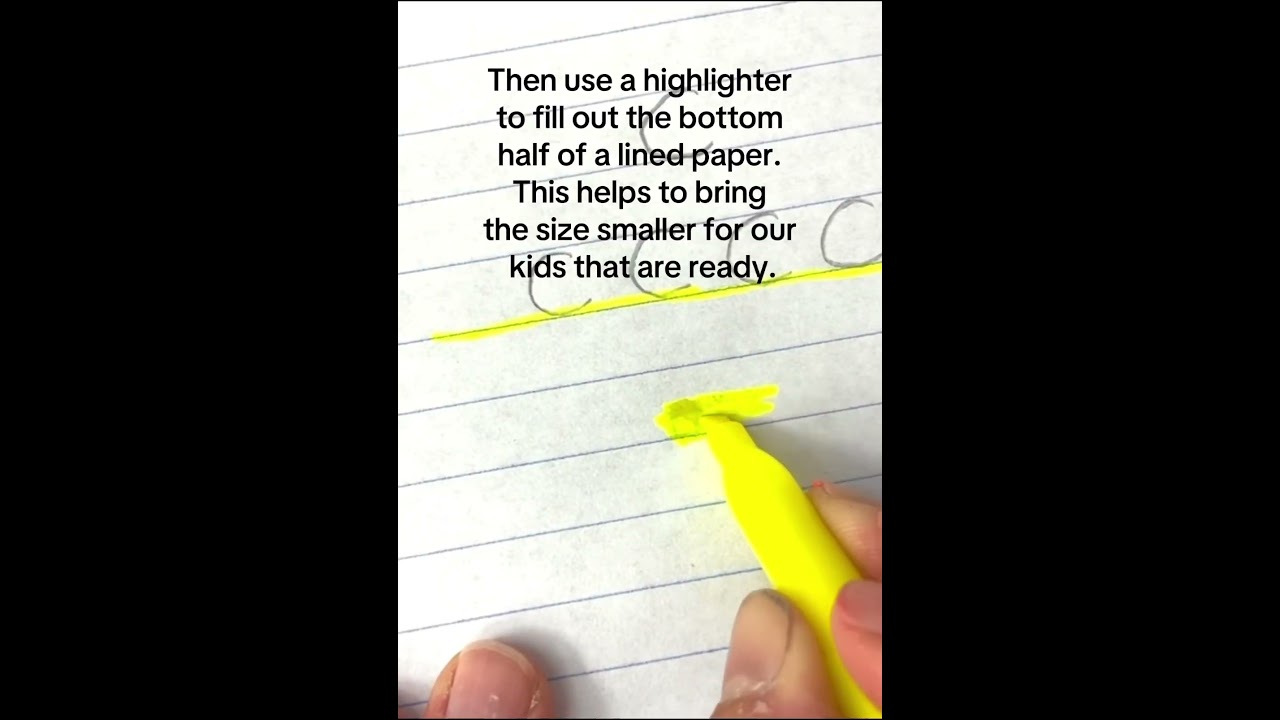 Then use a highlighter
to fill out the bottom
half of a lined paper.
This helps to bring
the size smaller for our
kids that are ready.
C
C C C C